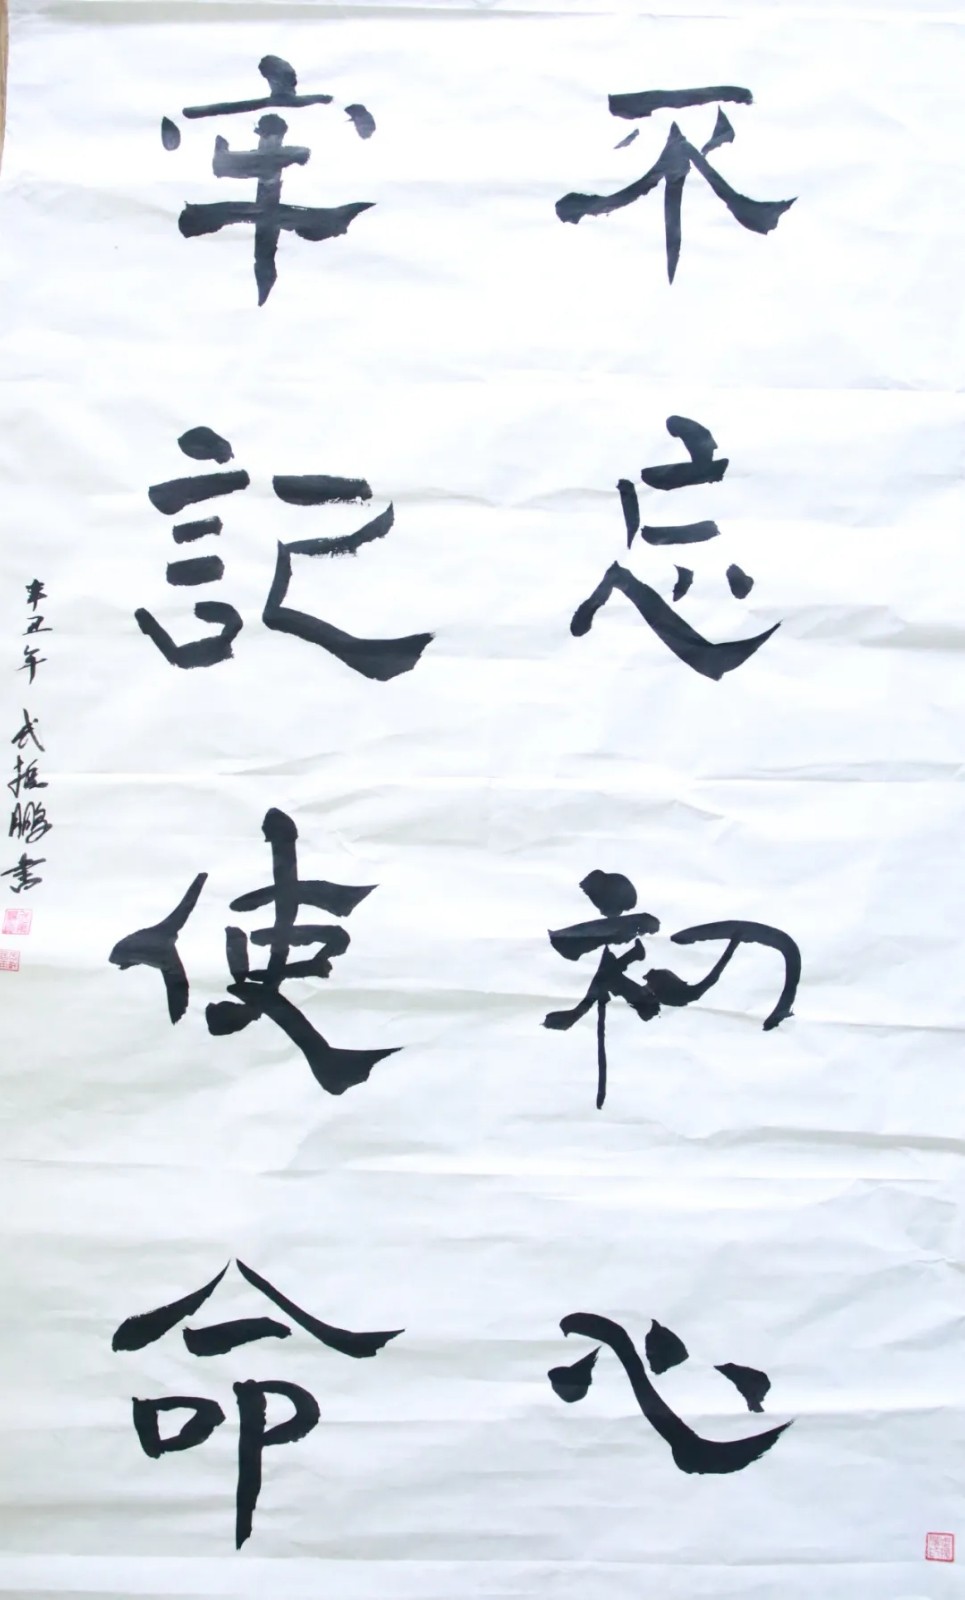 不忘初心
牢記使命
辛丑年 武振鹏書